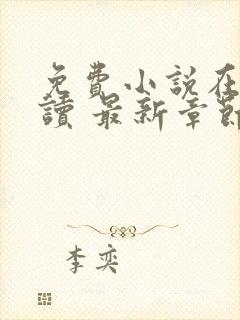 免費小說在
讀 最新章節
李奕